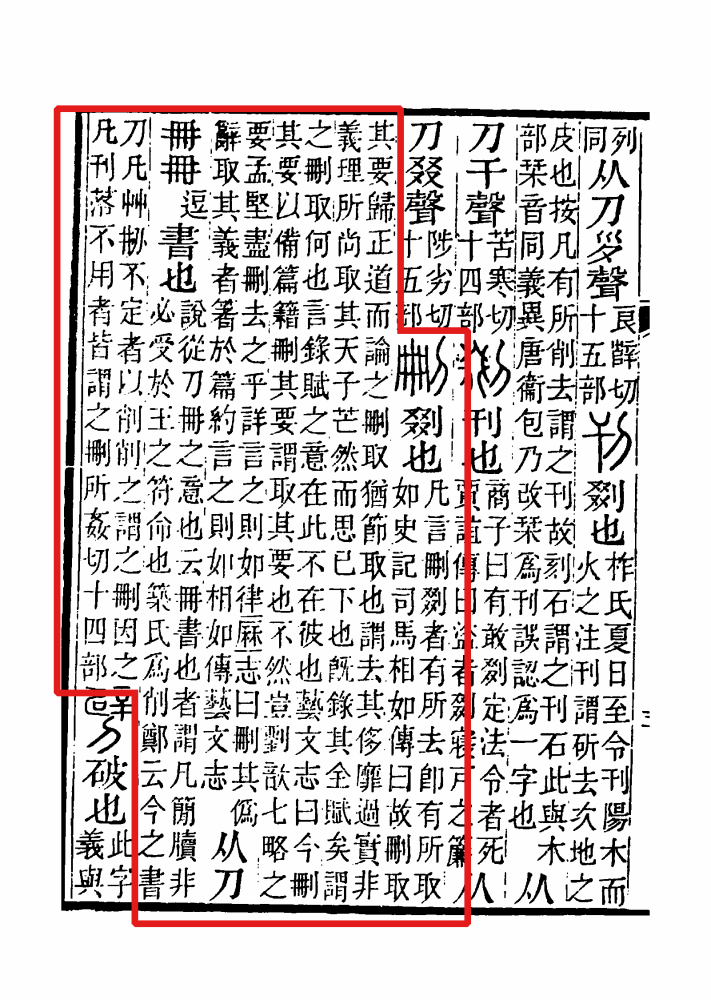 列同从刀𡿪聲良辥切十五部刊剟也柞氏夏日至令刊陽木而火之注刊謂斫去次地之
皮也按凡有所削去謂之刊故刻石謂之刊石此與木部栞音同義異唐衞包乃改栞爲刊誤認爲一字也从
刀干聲苦寒切十四部剟刊也商子曰有敢剟定法令者死賈誼傳曰盜者剟寢戶之簾从
刀叕聲陟劣切十五部刪剟也凡言刪剟者有所去卽有所取如史記司馬相如傳曰故刪取
其要歸正道而論之刪取猶節取也謂去其侈靡過實非義理所尚取其天子芒然而思已下也旣錄其全賦矣謂
之刪取何也言錄賦之意在此不在彼也藝文志曰今刪其要以備篇籍刪其要謂取其要也不然豈劉歆七略之
要孟堅盡刪去之乎詳言之則如律厤志曰刪其僞辭取其義者箸於篇約言之則如相如傳藝文志从刀
冊冊逗書也說從刀冊之意也云冊書也者謂凡簡牘非必受於王之符命也築氏爲削鄭云今之書
刀凡艸㓞不定者以削削之謂之刪因之凡刊落不用者皆謂之刪所姦切十四部劈破也此字義與